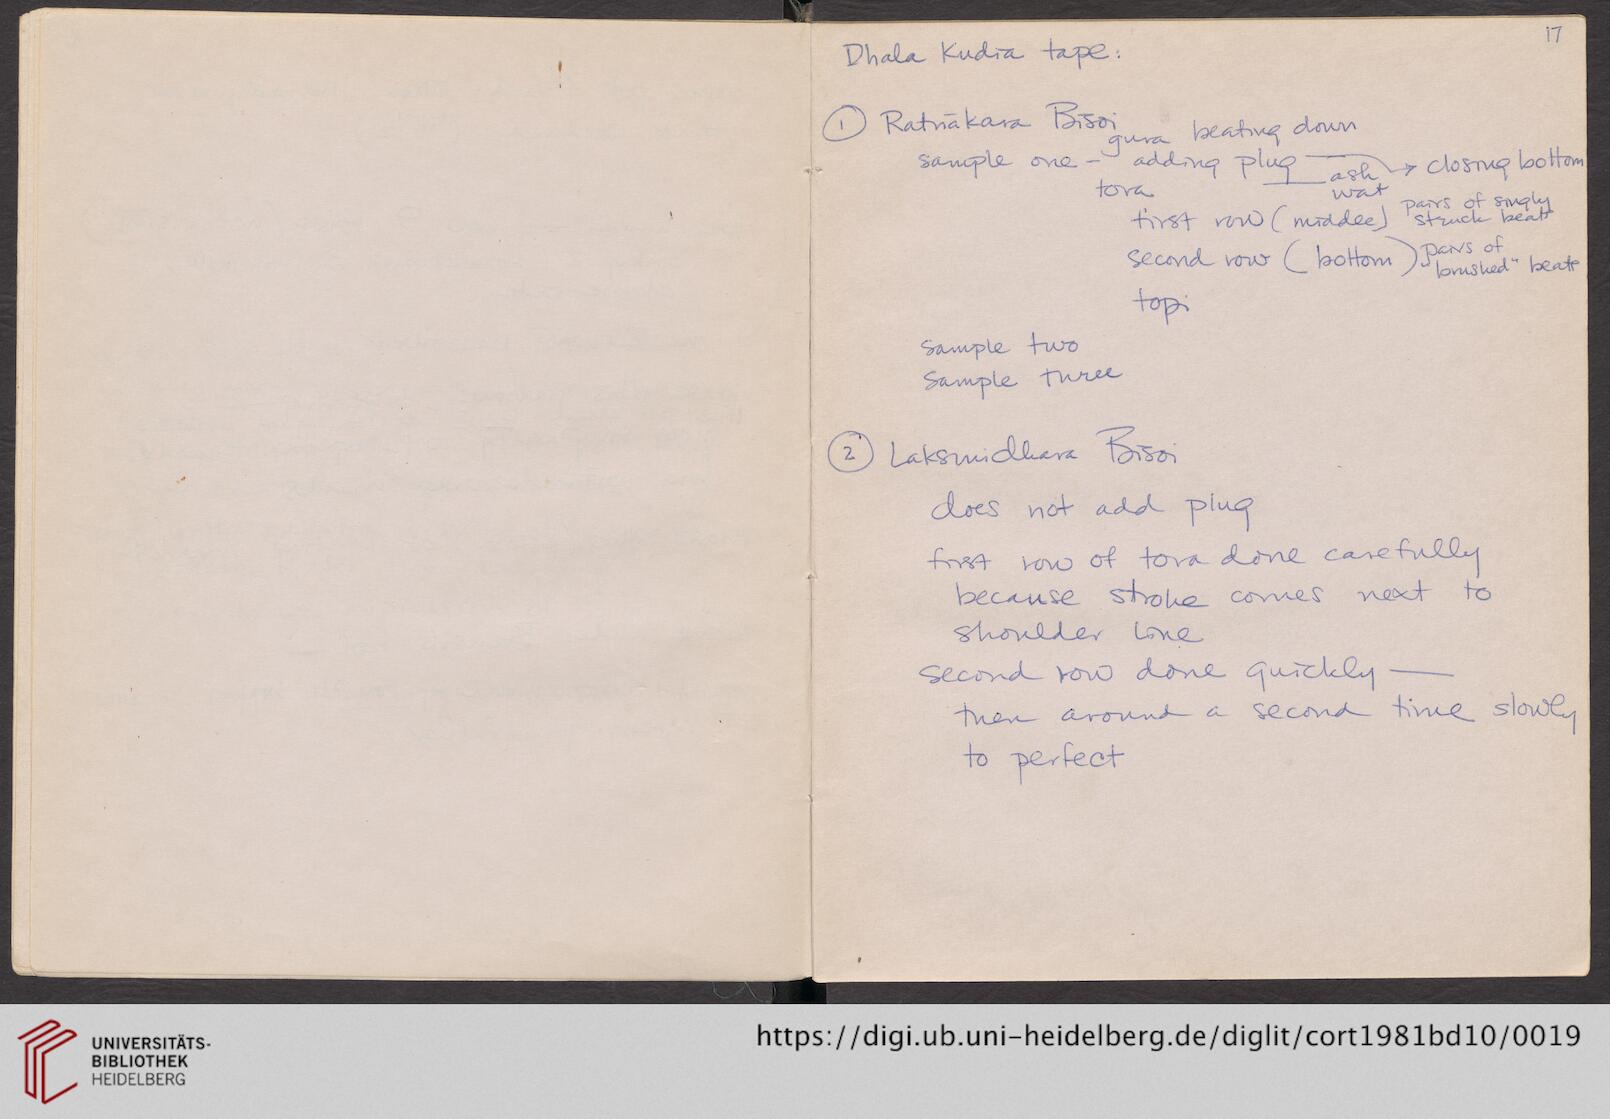 17
Dhala Kudia tape:
① Ratnākara Bisoi
gura beating down
sample one - adding plug → closing bottom
ash
tora wat
first row (middle) pairs of singly
struck beats
second row (bottom) pairs of
"brushed" beats
topi
sample two
sample three
② Laksmidhara Bisoi
does not add plug
first row of tora done carefully
because stroke comes next to
shoulder line
second row done quickly —
then around a second time slowly
to perfect
UNIVERSITÄTS-
BIBLIOTHEK
HEIDELBERG
https://digi.ub.uni-heidelberg.de/diglit/cort1981bd10/0019